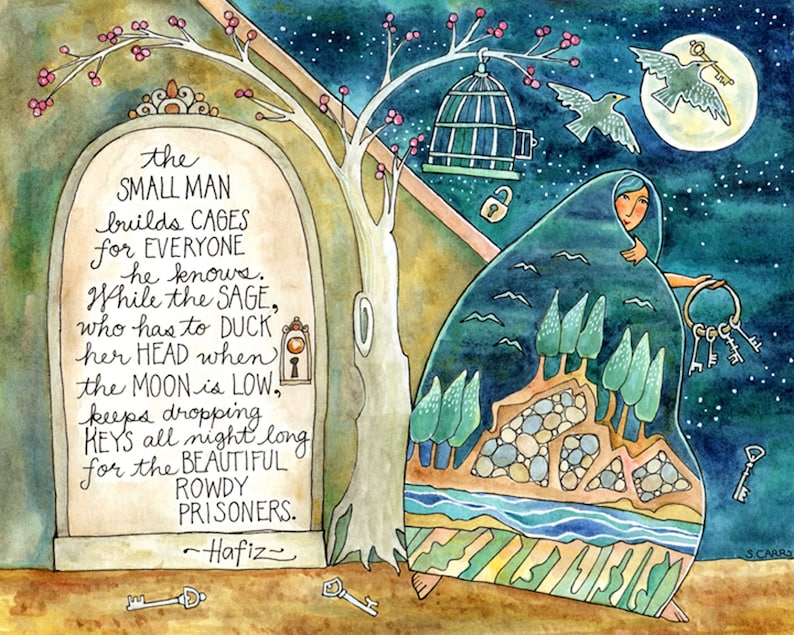 the
SMALL MAN
builds CAGES
for EVERYONE
he knows.
While the SAGE,
who has to DUCK
her HEAD when
the MOON is LOW,
keeps dropping
KEYS all night long
for the BEAUTIFUL
ROWDY
PRISONERS.
~Hafiz~
S. CARRO